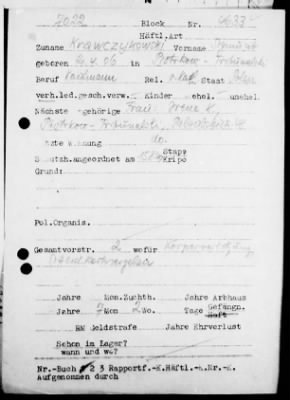 2022 Block Nr.
Häftl.Art
Zuname Krawczykowski Vorname
geboren 4.06 in Piotrkow-Trybunalski
Beruf Kaufmann Rel. r.kath Staat Polen
verh.led.gesch.verw. Kinder ehel. unehel.
Nächste gehörige Frau: Irene K.
Piotrkow-Trybunalski,
zte W nung do.
S utzh.angeordnet am Stapo
Kripo
Grund:
Pol.Organis.
Gesamtvorstr. 2 wofür Körperverletzung
Jahre Mon.Zuchth. Jahre Arbhaus
Jahre 7 Mon 2 Wo. Tage Gefängn.
Haft
RM Geldstrafe Jahre Ehrverlust
Schon im Lager?
wann und wo?
Nr.-Buch 1 2 3 Rapportf.-K.Häftl.-K.Nr.-K.
Aufgenommen durch